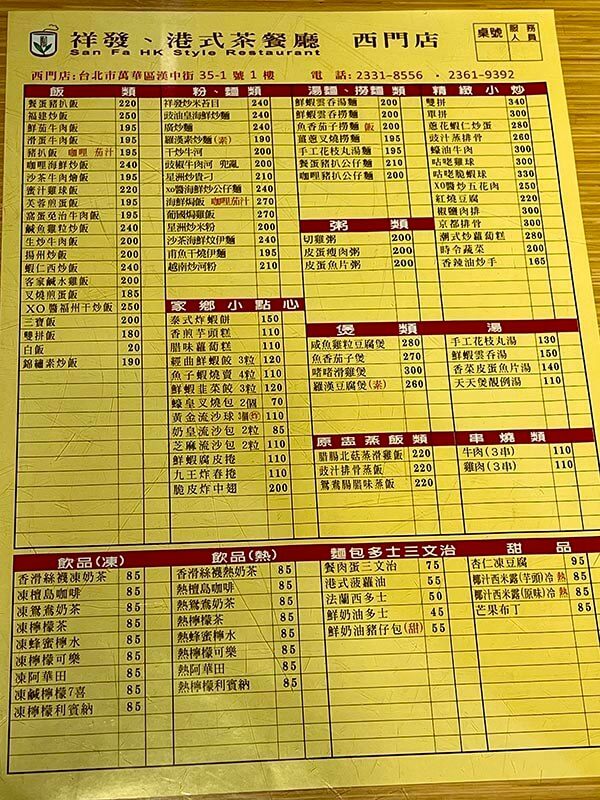 祥發、港式茶餐廳 西門店
San Fa HK Style Restaurant
桌號
服務人員
西門店:台北市萬華區漢中街 35-1 號 1 樓 電 話: 2331-8556 ‧ 2361-9392
飯 類
餐蛋豬扒飯 220
福建炒飯 250
鮮茄牛肉飯 195
滑蛋牛肉飯 195
豬扒飯 咖哩 茄汁 195
咖哩海鮮炒飯 240
沙茶牛肉燴飯 195
蜜汁雞球飯 220
芙蓉煎蛋飯 195
窩蛋免治牛肉飯 195
鹹魚雞粒炒飯 210
生炒牛肉飯 200
揚州炒飯 200
蝦仁西炒飯 240
客家鹹水雞飯 200
叉燒煎蛋飯 185
XO醬福州干炒飯 250
三寶飯 200
雙拼飯 180
白飯 20
錦繡素炒飯 190
粉、麵 類
祥發炒米苔目 240
豉油皇海鮮炒麵 240
廣炒麵 240
羅漢素炒麵(素) 190
干炒牛河 200
豉椒牛肉河 兜亂 200
星洲炒貴刁 210
xo醬海鮮炒公仔麵 240
海鮮焗飯 咖哩茄汁 270
葡國焗雞飯 270
星洲炒米粉 200
沙茶海鮮炆伊麵 240
甫魚干燒伊麵 190
越南炒河粉 210
家鄉小點心
泰式炸蝦餅 150
香煎芋頭糕 110
臘味蘿蔔糕 110
經曲鮮蝦餃 3粒 120
魚子蝦燒賣 4粒 110
鮮蝦韭菜餃 3粒 120
蠔皇叉燒包 2個 70
黃金流沙球 3個 110
奶皇流沙包 2粒 85
芝麻流沙包 2粒 110
鮮蝦腐皮捲 110
九王炸春捲 110
脆皮炸中翅 200
湯麵、撈麵類
鮮蝦雲吞湯麵 200
鮮蝦雲吞撈麵 200
魚香茄子撈麵 飯 200
薑蔥叉燒撈麵 195
手工花枝丸湯麵 190
餐蛋豬扒公仔麵 210
咖哩豬扒公仔麵 175
粥 類
切雞粥 200
皮蛋瘦肉粥 200
皮蛋魚片粥 200
精緻小炒
雙拼 340
單拼 300
蔥花蝦仁炒蛋 280
豉汁蒸排骨 260
蠔油牛肉 300
咕咾雞球 300
咕咾脆蝦球 330
XO醬炒五花肉 250
紅燒豆腐 220
椒鹽肉排 300
京都排骨 300
潮式炒蘿蔔糕 280
時令蔬菜 200
香辣油炒手 165
煲 類
咸魚雞粒豆腐煲 280
魚香茄子煲 270
啫啫滑雞煲 300
羅漢豆腐煲(素) 260
湯
手工花枝丸湯 130
鮮蝦雲吞湯 150
香菜皮蛋魚片湯 140
天天煲靚例湯 110
原盅蒸飯類
腊腸北菇蒸滑雞飯 220
豉汁排骨蒸飯 220
鴛鴦腸腊味蒸飯 220
串燒類
牛肉(3串) 110
雞肉(3串) 110
飲品(凍)
香滑絲襪凍奶茶 85
凍檀島咖啡 85
凍鴛鴦奶茶 85
凍檸檬茶 85
凍蜂蜜檸水 85
凍檸檬可樂 85
凍阿華田 85
凍鹹檸檬7喜 85
凍檸檬利賓納 85
飲品(熱)
香滑絲襪熱奶茶 85
熱檀島咖啡 85
熱鴛鴦奶茶 85
熱檸檬茶 85
熱蜂蜜檸水 85
熱檸檬可樂 85
熱阿華田 85
熱檸檬利賓納 85
麵包多士三文治
餐肉蛋三文治 75
港式菠蘿油 55
法蘭西多士 50
鮮奶油多士 45
鮮奶油豬仔包(甜) 55
甜 品
杏仁凍豆腐 95
椰汁西米露(芋頭)冷 熱 85
椰汁西米露(原味)冷 熱 85
芒果布丁 85